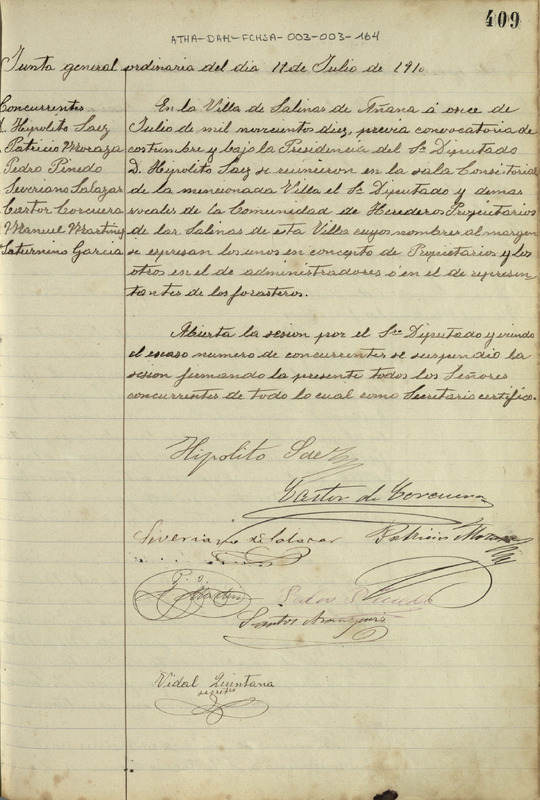 409
ATHA-DAH-FCHSA-003-003-164
Junta general ordinaria del dia 11 de Julio de 1910
Concurrentes
D. Hipolito Saez
Patricio Moraza
Pedro Pinedo
Severiano Salazar
Castor Corcuera
Manuel Martinez
Saturnino Garcia
En la Villa de Salinas de Añana á once de
Julio de mil novecientos diez, previa convocatoria de
costumbre y bajo la Presidencia del Sr. Diputado
D. Hipolito Saez se reunieron en la sala Consistorial
de la mencionada Villa el Sr. Diputado y demas
vocales de la Comunidad de Herederos Propietarios
de las Salinas de esta Villa cuyos nombres al margen
se expresan los unos en concepto de Propietarios y los
otros en el de administradores ó en el de represen-
tantes de los forasteros.
Abierta la sesion por el Sr. Diputado y viendo
el escaso numero de concurrentes se suspendió la
sesion firmando la presente todos los Señores
concurrentes de todo lo cual como Secretario certifico.
Hipolito Saez
Castor de Corcuera
Severiano de Salazar
Patricio Moraza
Pedro Pinedo
Santos
Vidal Quintana
secretro